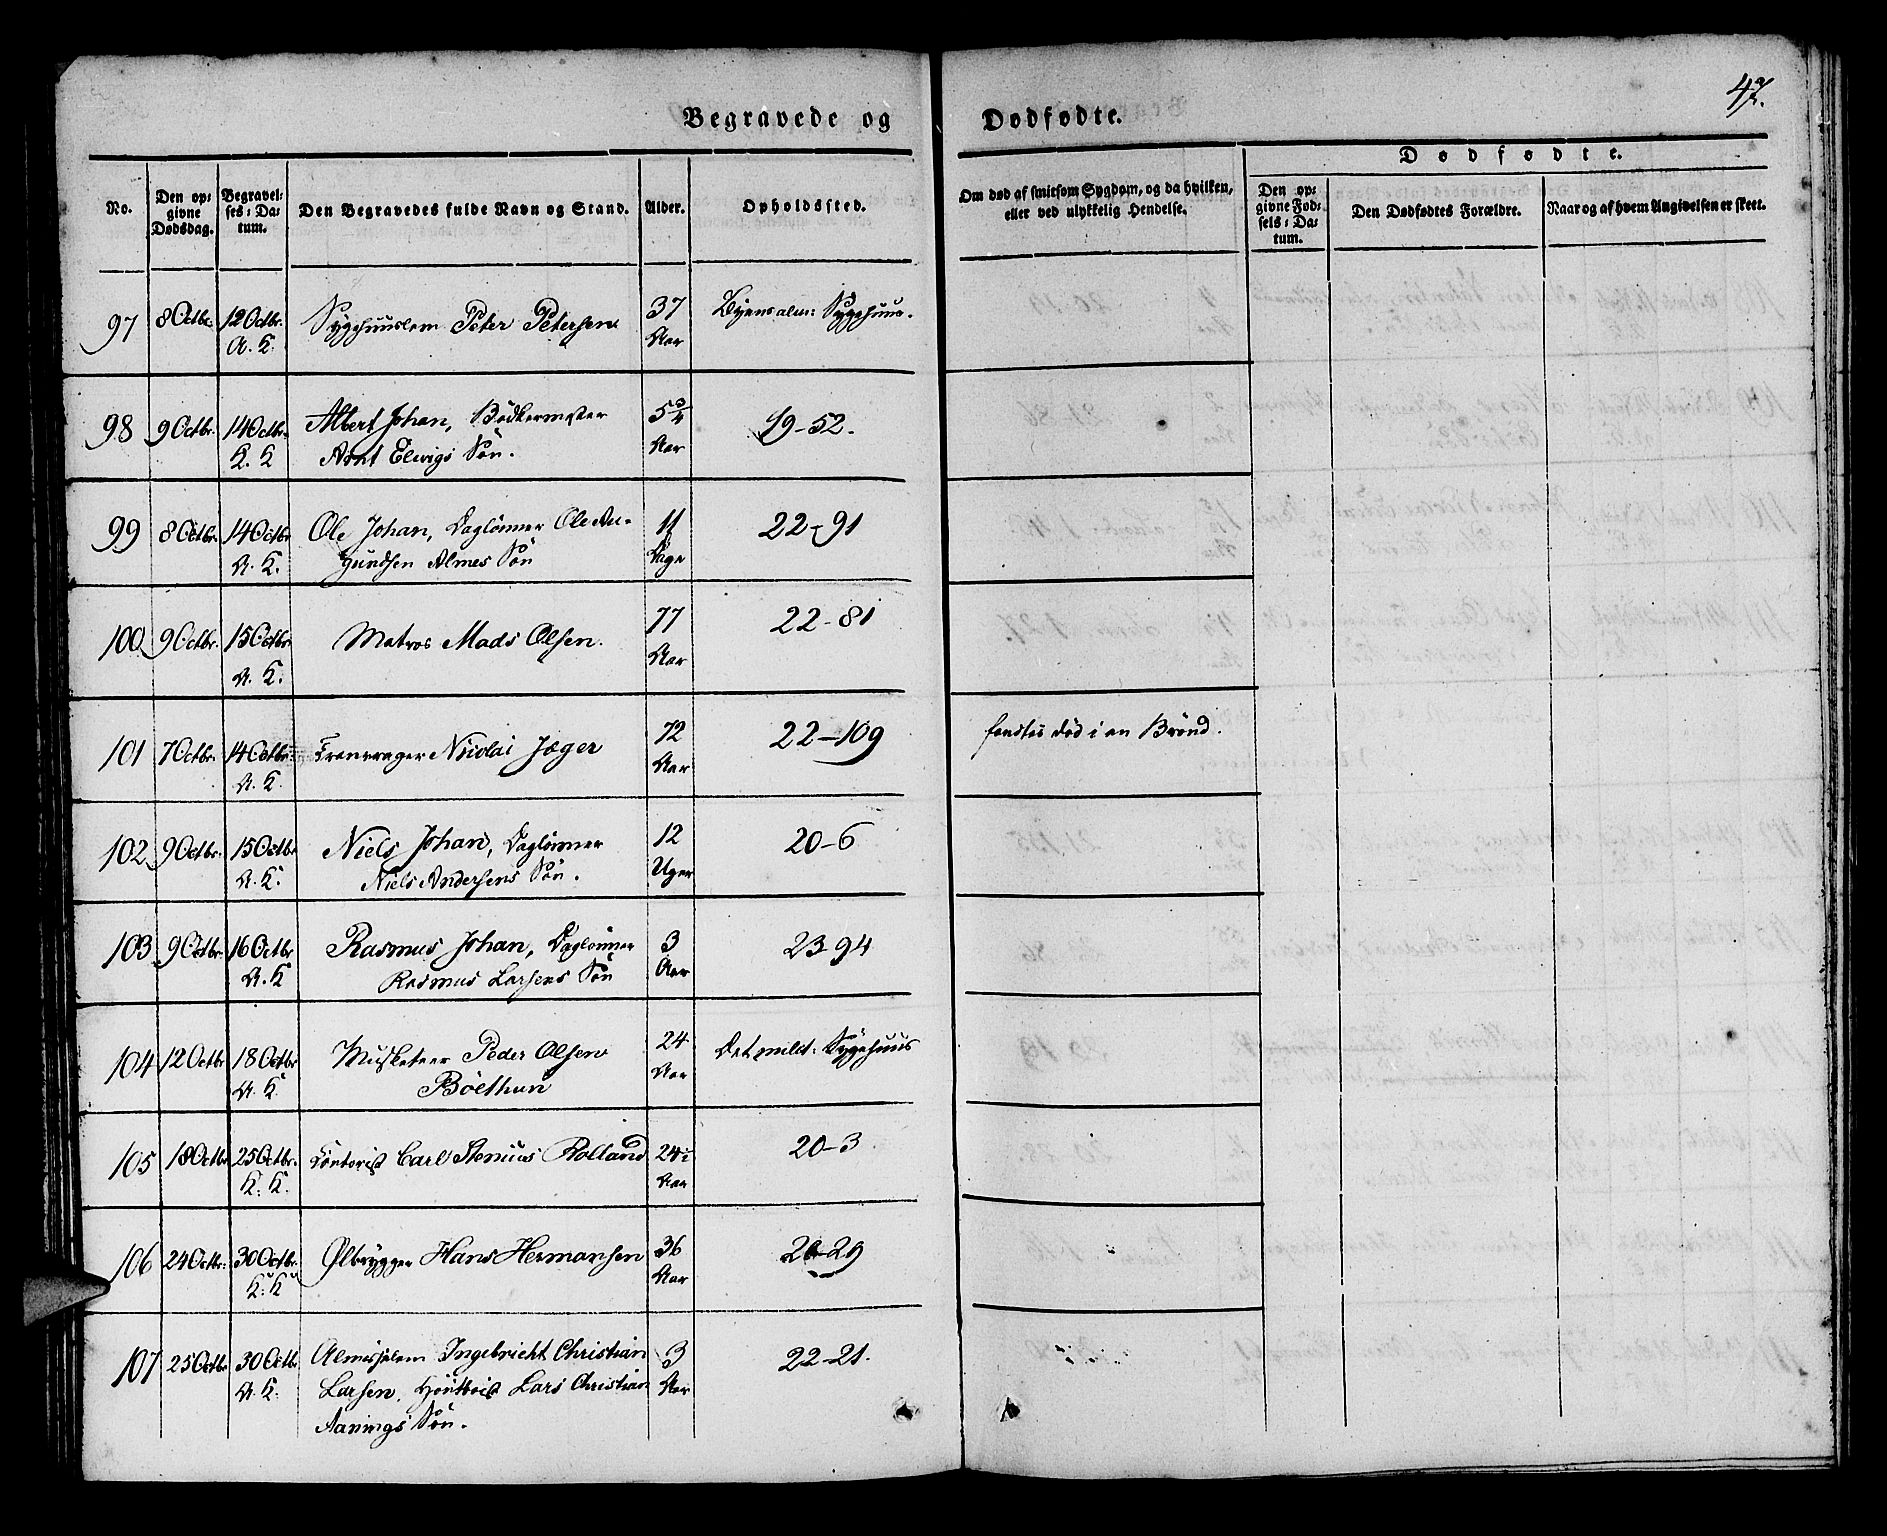 47.
Begravede og Dødfødte.
No.
Den opgivne Dødsdag.
Begravelses-Datum.
Den Begravedes fulde Navn og Stand.
Alder.
Opholdssted.
Om død af smitsom Sygdom, og da hvilken, eller ved ulykkelig Hendelse.
Dødfødte.
Den opgivne Fødsels-Datum.
Den Dødfødtes Forældre.
Naar og af hvem Angivelsen er skeet.
97 8 Octbr. 12 Octbr. Sygehuuslem Peter Petersen 37 Byens alm: Sygehuus.
A. K. Aar
98 9 Octbr. 14 Octbr. Albert Johan, Bødkermester 5 3/4 19-52.
K. K Arnt Elvigs Søn. Aar
99 8 Octbr. 14 Octbr Ole Johan, Daglønner Ole Au- 11 22-91
A. K. gundsen Almes Søn Dage
100 9 Octbr. 15 Octbr. Matros Mads Olsen. 77 22-81
A. K. Aar
101 7 Octbr. 14 Octbr. Kranvrager Nicolai Jæger 72 22-109 fandtes død i en Brønd.
A. K. Aar
102 9 Octbr. 15 Octbr Niels Johan, Daglønner 12 20-6
A. K. Niels Andersens Søn. Uger
103 9 Octbr. 16 Octbr Rasmus Johan, Daglønner 3 23-94
A. K Rasmus Larsens Søn Aar
104 12 Octbr 18 Octbr Musketeer Peder Olsen 24 Det milit: Sygehuus
A. K. Böethun Aar
105 18 Octbr 25 Octbr. Contorist Carl Stenius Rolland 24 20-3
K. K. Aar
106 24 Octbr. 30 Octbr. Ølbrygger Hans Hermansen 36 20-29
K. K Aar
107 25 Octbr 30 Octbr Almisselem Ingebricht Christian 3 22-21.
A. K. Larsen, Houtboist Lars Christian Aar
Aanings Søn.